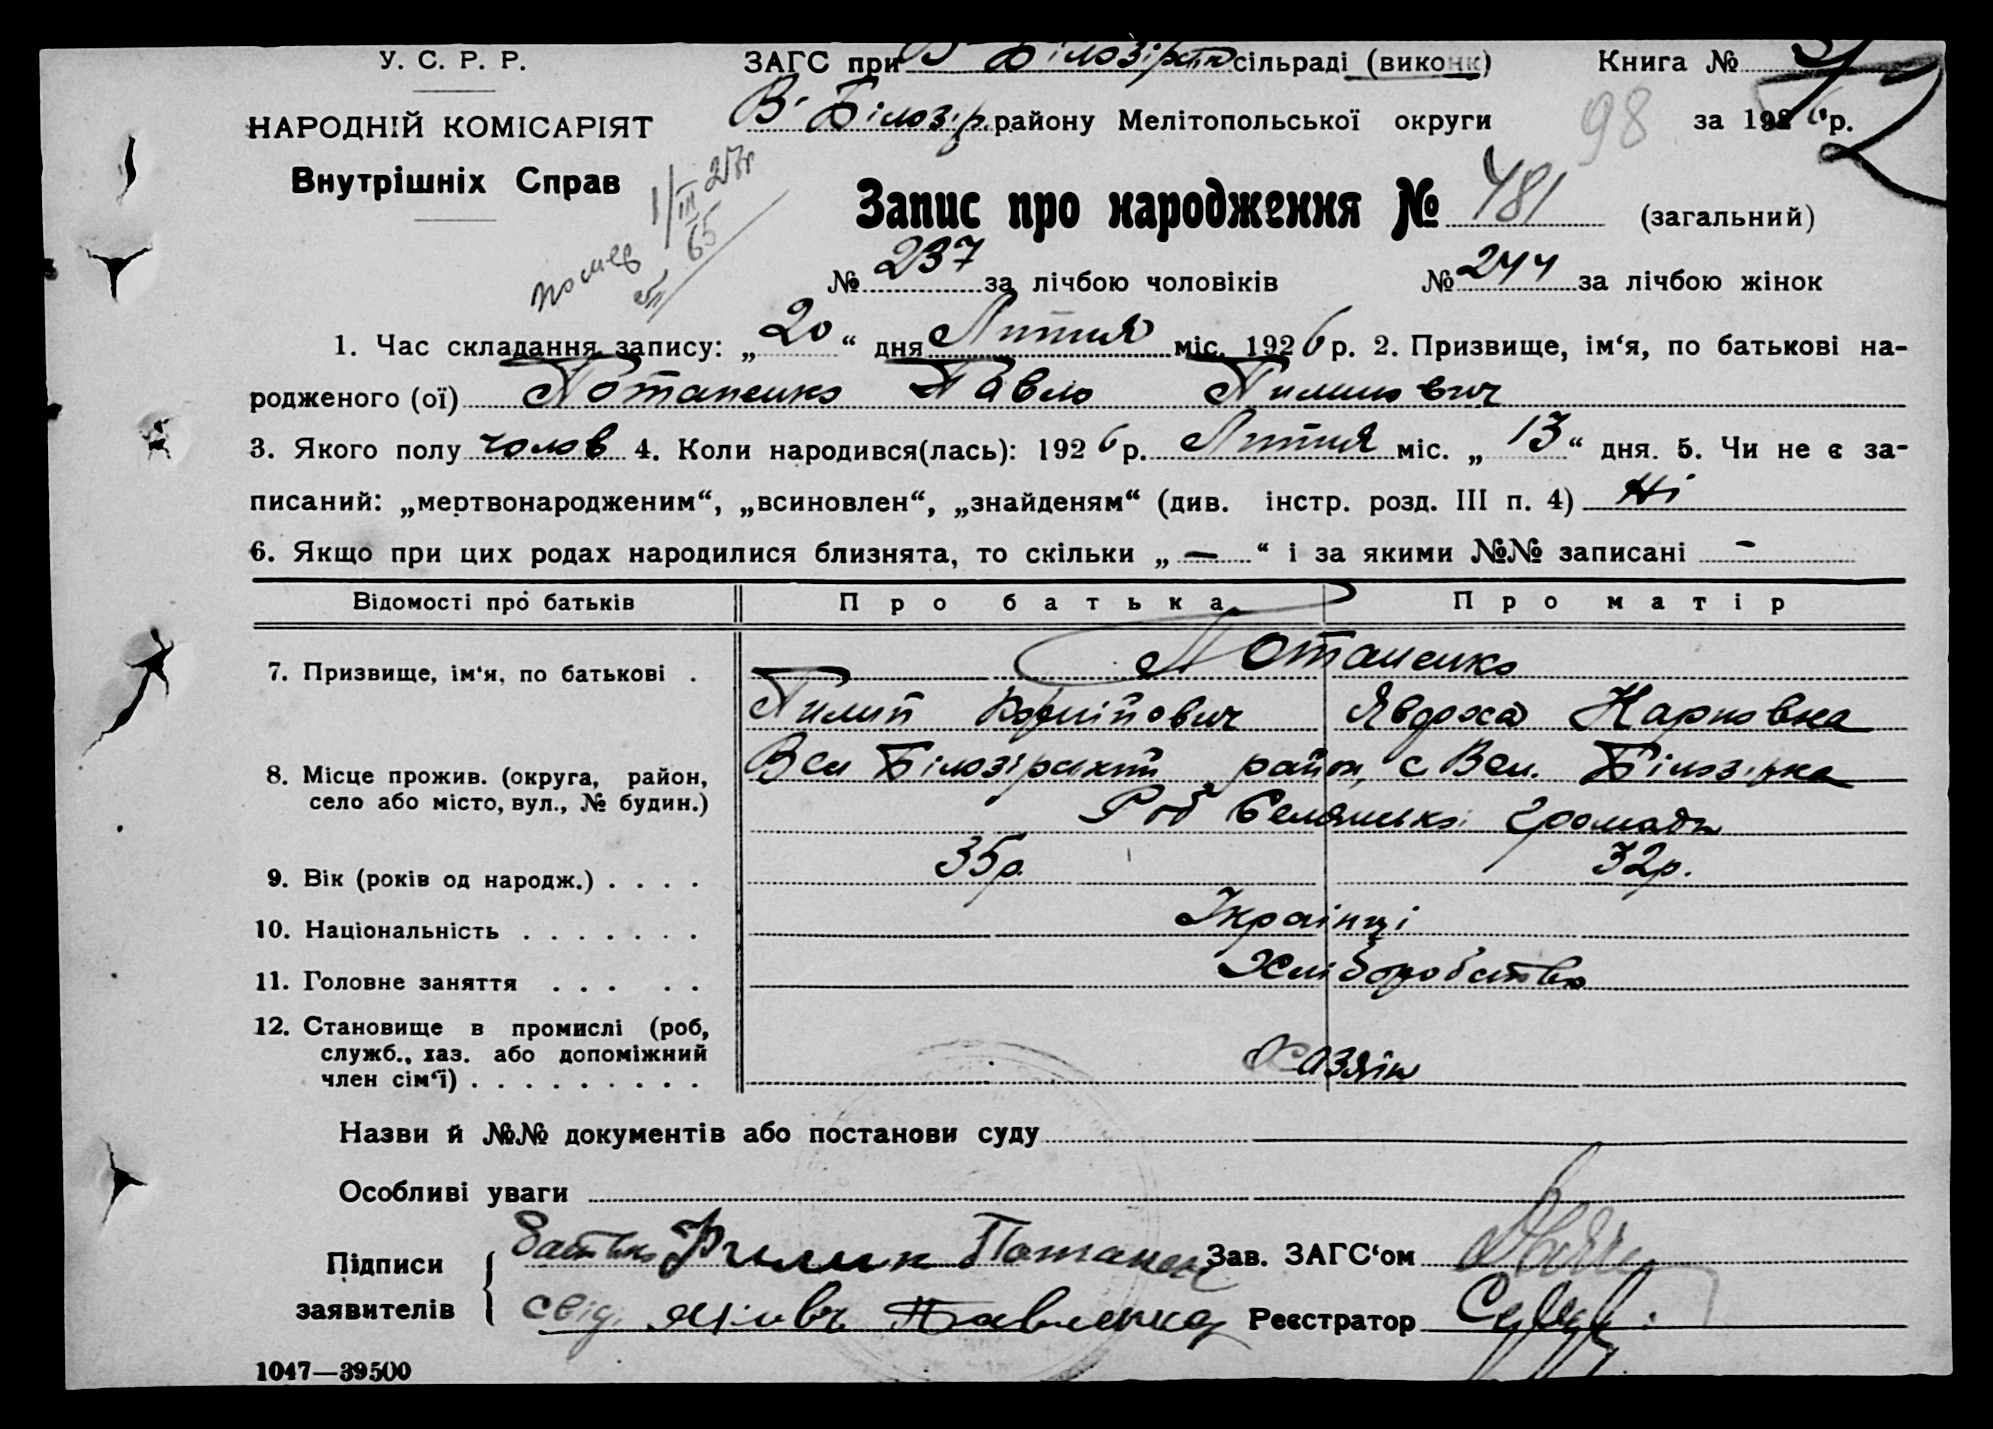 У. С. Р. Р.
ЗАГС при В-Білозірськ сільраді (виконк)
Книга №
НАРОДНІЙ КОМІСАРІЯТ
В-Білозір. району Мелітопольської округи
98
за 1926 р.
Внутрішніх Справ
Запис про народження № 481 (загальний)
№ 237 за лічбою чоловіків № 244 за лічбою жінок
1. Час складання запису: „20“ дня Липня міс. 1926 р. 2. Призвище, ім‘я, по батькові на-
родженого (ої) Потапенко Павло Пилипович
3. Якого полу чолов 4. Коли народився(лась): 1926 р. Липня міс. „13“ дня. 5. Чи не є за-
писаний: „мертвонародженим“, „всиновлен“, „знайденям“ (див. інстр. розд. III п. 4) Ні
6. Якщо при цих родах народилися близнята, то скільки „—“ і за якими №№ записані -
Відомості про батьків
Про батька
Про матір
7. Призвище, ім‘я, по батькові .
Потапенко
Пилип
Явдоха Карповна
8. Місце прожив. (округа, район,
село або місто, вул., № будин.)
Вел Білозірський район, с Вел. Білозірка
Селянської громади
9. Вік (років од народж.) . . . .
35р.
32р.
10. Національність . . . . . . .
Українці
11. Головне заняття . . . . .
Хліборобство
12. Становище в промислі (роб,
служб., хаз. або допоміжний
член сім‘ї) . . . . . . . . .
Хазяін
Назви й №№ документів або постанови суду
Особливі уваги
Підписи
заявителів
Батько Филип Потапенк
Зав. ЗАГС‘ом
свід. Яковъ Павленко
Реєстратор
1047—39500